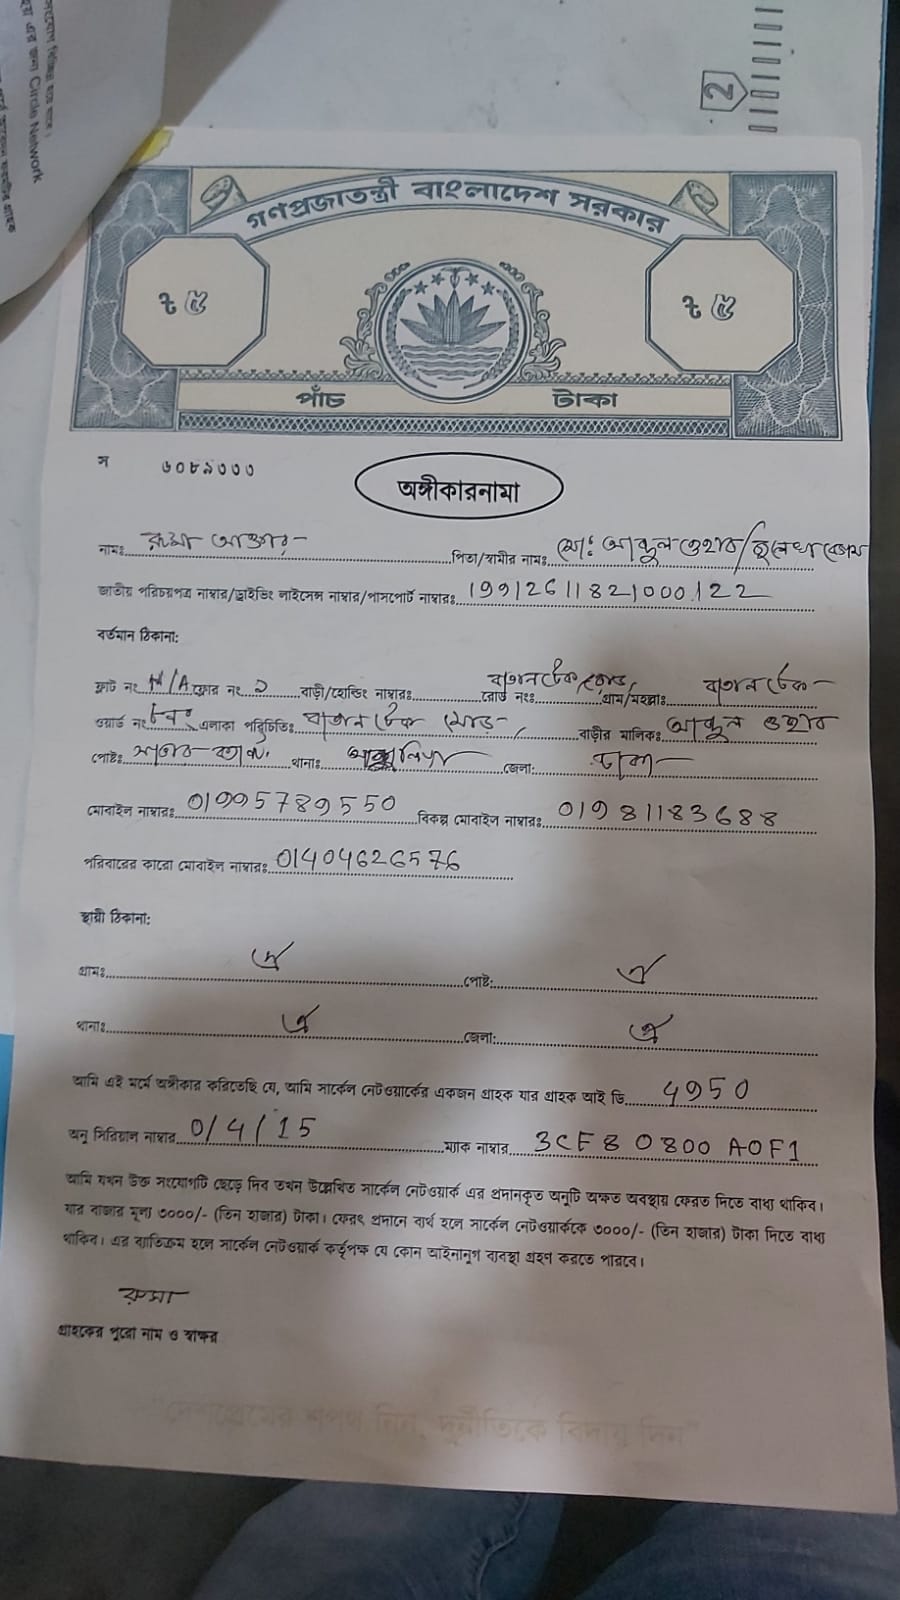 সংযোগ বিচ্ছিন্ন হয়ে যাবে।
এর জন্য Circle Network
2
গণপ্রজাতন্ত্রী বাংলাদেশ সরকার
৳ ৫ ৳ ৫
পাঁচ টাকা
স ৬০৮৯৩৩৩
অঙ্গীকারনামা
নামঃ রুমা আক্তার পিতা/স্বামীর নামঃ মোঃ আব্দুল ওহাব/জুলেখা বেগম
জাতীয় পরিচয়পত্র নাম্বার/ড্রাইভিং লাইসেন্স নাম্বার/পাসপোর্ট নাম্বারঃ 19912611821000122
বর্তমান ঠিকানা:
ফ্লাট নং N/A ফ্লোর নং ১ বাড়ী/হোল্ডিং নাম্বারঃ রোড নংঃ গ্রাম/মহল্লাঃ
ওয়ার্ড নং এলাকা পরিচিতিঃ বাড়ীর মালিকঃ আব্দুল ওহাব
পোষ্টঃ থানাঃ আশুলিয়া জেলা: ঢাকা
মোবাইল নাম্বারঃ 01995789550 বিকল্প মোবাইল নাম্বারঃ 01981183688
পরিবারের কারো মোবাইল নাম্বারঃ 01404626576
স্থায়ী ঠিকানা:
গ্রামঃ ঐ পোষ্ট: ঐ
থানাঃ ঐ জেলা: ঐ
আমি এই মর্মে অঙ্গীকার করিতেছি যে, আমি সার্কেল নেটওয়ার্কের একজন গ্রাহক যার গ্রাহক আই ডি 4950
অনু সিরিয়াল নাম্বার 0/4/15 ম্যাক নাম্বার 3CF80800A0F1
আমি যখন উক্ত সংযোগটি ছেড়ে দিব তখন উল্লেখিত সার্কেল নেটওয়ার্ক এর প্রদানকৃত অনুটি অক্ষত অবস্থায় ফেরত দিতে বাধ্য থাকিব।
যার বাজার মূল্য ৩০০০/- (তিন হাজার) টাকা। ফেরৎ প্রদানে ব্যর্থ হলে সার্কেল নেটওয়ার্ককে ৩০০০/- (তিন হাজার) টাকা দিতে বাধ্য
থাকিব। এর ব্যতিক্রম হলে সার্কেল নেটওয়ার্ক কর্তৃপক্ষ যে কোন আইনানুগ ব্যবস্থা গ্রহণ করতে পারবে।
রুমা
গ্রাহকের পুরো নাম ও স্বাক্ষর
"দেশপ্রেমের শপথ নিন, দুর্নীতিকে বিদায় দিন"